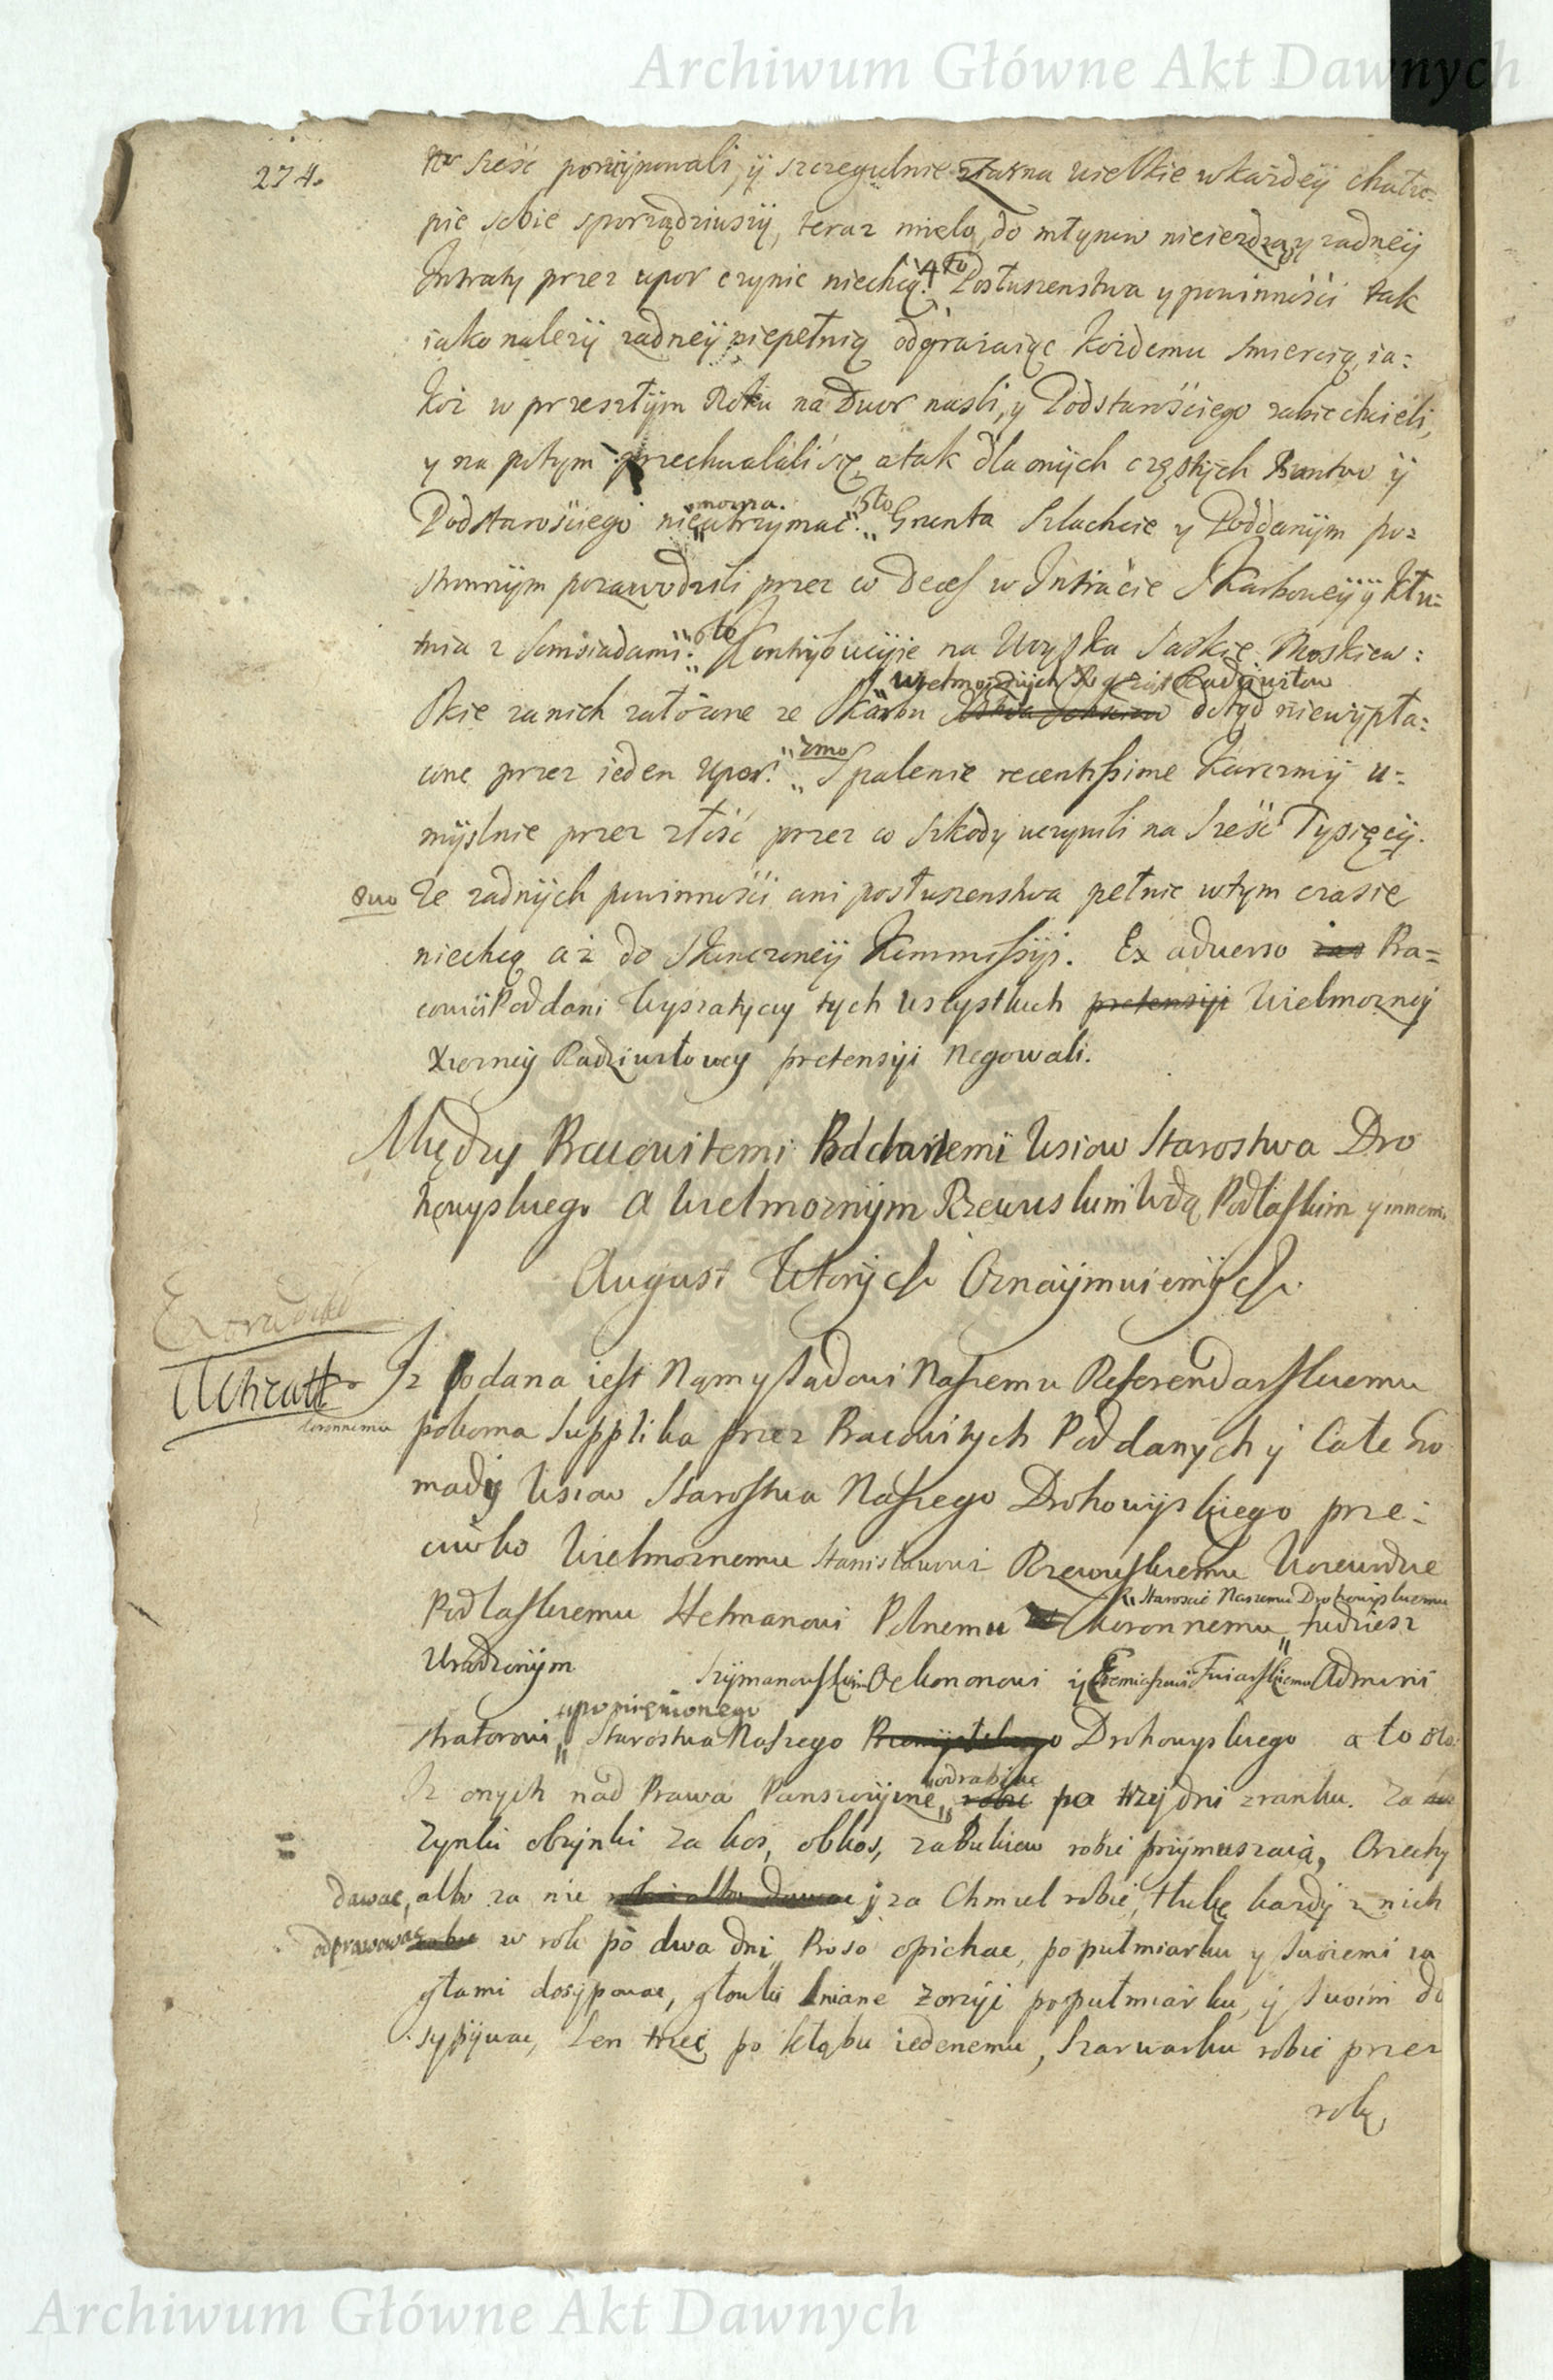 Archiwum Główne Akt Dawnych
274.
sześć poruynowali, ÿ szczegulnie żarna wielkie w kazdeÿ chału=
pie sobie sporządziwszÿ, teraz mielą, do młynow niejezdzą, y zadneÿ
Intraty przez upor czynic niechcą. 4to Posłuszenstwa y powinności tak
iako nalezÿ zadneÿ niepełnią odgrazaiąc kozdemu smiercią, ia=
koż w przeszłÿm Roku na Dwor naszli, y Podstarościego zabic chcieli,
y na potym przechwalali się, a tak dla onÿch częstÿch Buntow ÿ
Podstarościego nie mozna utrzymac. 5to Grunta Szlachcie y Poddanÿm po=
stronnÿm pozawodzili przez co Deces w Intracie Skarboweÿ y Kłu=
tnia z Somsiadami. 6to Kontrybucÿie na Woyska Saskie Moskiew=
skie za nich załozone ze Skarbu Wielmoznÿch Xiąząt Radziwiłłow dotąd niewÿpła=
cone przez ieden Upor. 7mo Spalenie recentissime Karczmÿ u=
mÿslnie przez złość przez co szkody uczynili na Sześć Tysięcÿ.
8vo Ze zadnÿch powinności ani posłuszenstwa pełnic w tym czasie
niechcą aż do skonczoneÿ Kommissÿi. Ex adverso Pra=
cowici Poddani Wyszatyccy tych wszystkich pretensÿi Wielmozneÿ
Xiezneÿ Radziwiłłowey pretensÿi negowali.
Między Pracowitemi Poddanemi Wsiow Starostwa Dro
howyskiego a Wielmoznÿm Rzewuskim Wdą Podlaskim y innemi
August Wtorÿ etc. Oznaÿmuiemÿ etc.
Iz podana iest Nam y Sądowi Naszemu Referendarskiemu
pokorna Supplika przez Pracowitych Poddanych y Całe Gro
madÿ Wsiow Starostwa Naszego Drohowÿskiego prze=
ciwko Wielmoznemu Stanisławowi Rzewuskiemu Woiewodzie
Podlaskiemu Hetmanowi Polnemu Koronnemu Staroscie Naszemu Drohowÿskiemu tudziesz
Urodzonÿm Szÿmanowskiemu Oekonomowi ÿ Admini
stratorowi upomnionego Starostwa Naszego Drohowyskiego a to oto:
Iz onych nad Prawa Panszczÿzne odrabiac po trzy dni z ranku. Za
zynki obzynki za kos, obkos, za Bukiew robic prÿmuszaią, Orzechy
dawac, albo za nie ÿ za Chmiel robic, tłukę kazdÿ z nich
odprawowac w rok po dwa dni, Proso opichac, po pułmiarku y swoiemi ia
głami dosÿpowac, głowki lniane po pułmiarku, ÿ swoim do
sypÿwac, Len trzec po kłąbu iedenemu, Szarwarku robic przez
rok,
Archiwum Główne Akt Dawnych